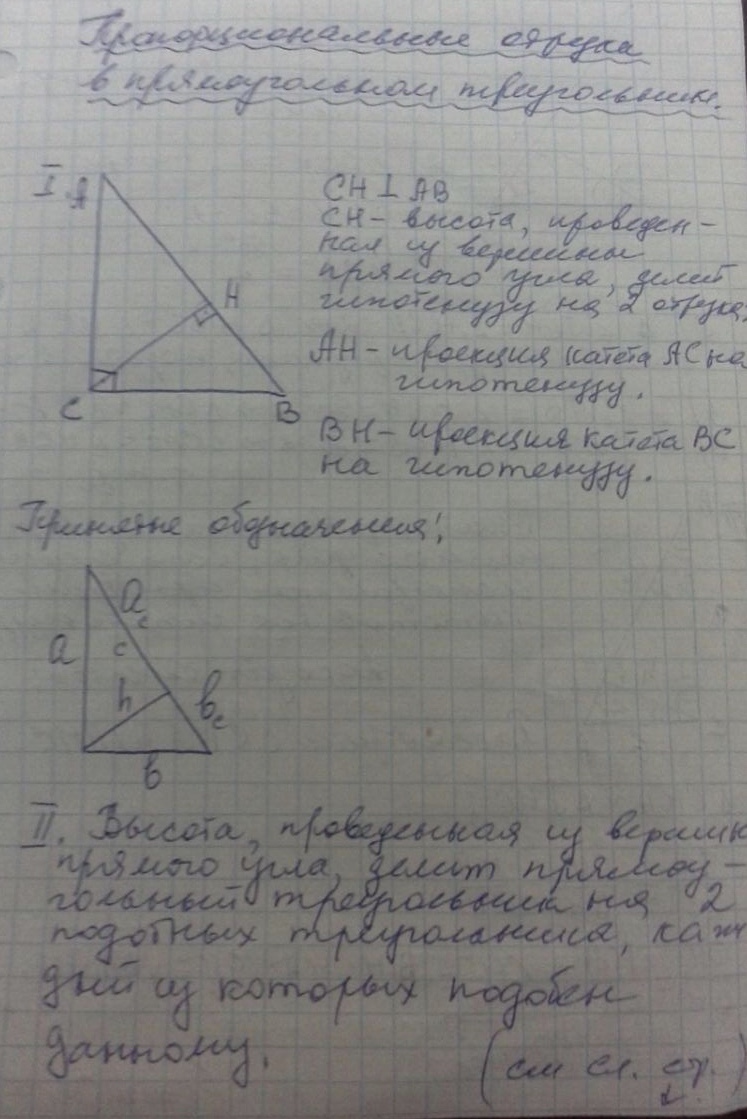 Пропорциональные отрезки
в прямоугольном треугольнике.
I
A
H
C
B
CH ⊥ AB
CH - высота, проведен-
ная из вершины
прямого угла, делит
гипотенузу на 2 отрезка.
AH - проекция катета AC на
гипотенузу.
BH - проекция катета BC
на гипотенузу.
Принятые обозначения:
a
a_c
c
h
b_c
b
II. Высота, проведенная из вершин
прямого угла, делит прямоу-
гольный треугольник на 2
подобных треугольника, каж
дый из которых подобен
данному.
(см сл. стр.)